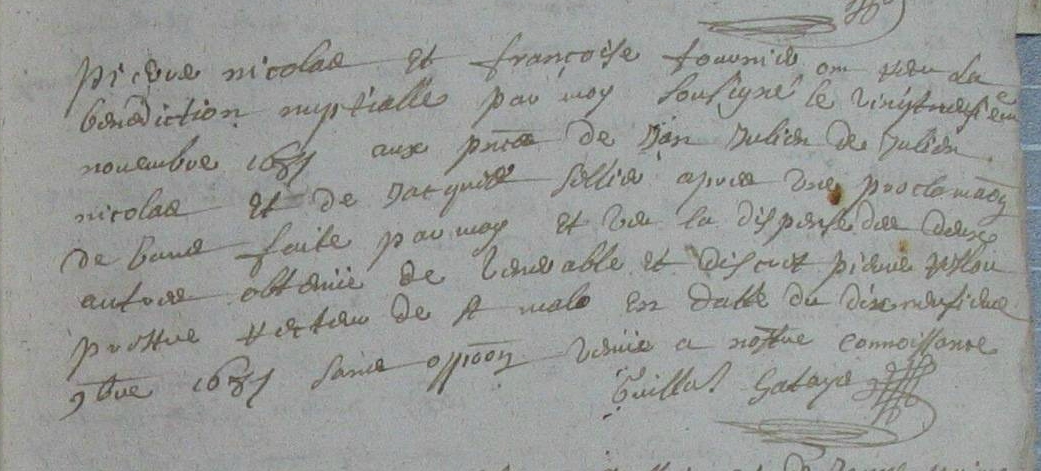 pierre nicolas et françoise fournier ont reçu la
benediction nuptialle par moy soussigné le vingtneufiem
novembre 1687 aux pnces de Jan Julien de Julien
nicolas et de Jacquis Sellier apres une proclamaon
de bans faite par moy et veu la dispense des deux
autres obtenüe de venerable et discret pierre
prestre recteur de st malo en datte du dixneufieme
9bre 1687 sans oppoon venüe a nostre connoissance
Guillas Gataye